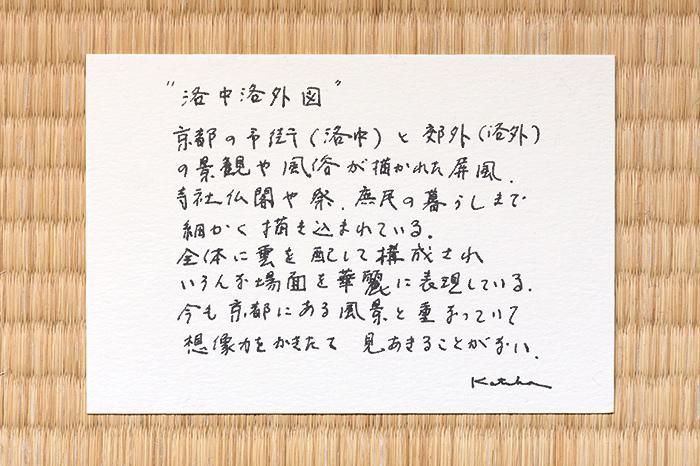 "洛中洛外図"
京都の市街(洛中)と郊外(洛外)
の景観や風俗が描かれた屏風.
寺社仏閣や祭、庶民の暮らしまで
細かく描き込まれている.
全体に雲を配して構成され
いろんな場面を華麗に表現している.
今も京都にある風景と重なっていて
想像力をかきたて 見あきることがない.